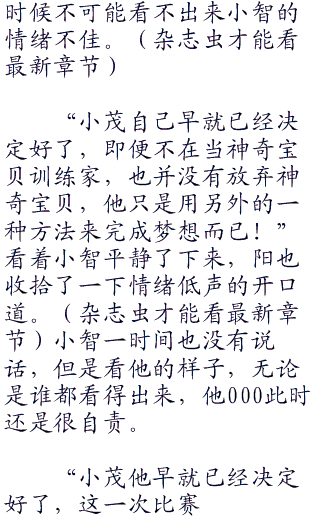 时候不可能看不出来小智的
情绪不佳。（杂志虫才能看
最新章节）
“小茂自己早就已经决
定好了，即便不在当神奇宝
贝训练家，也并没有放弃神
奇宝贝，他只是用另外的一
种方法来完成梦想而已！”
看着小智平静了下来，阳也
收拾了一下情绪低声的开口
道。（杂志虫才能看最新章
节）小智一时间也没有说
话，但是看他的样子，无论
是谁都看得出来，他000此时
还是很自责。
“小茂他早就已经决定
好了，这一次比赛